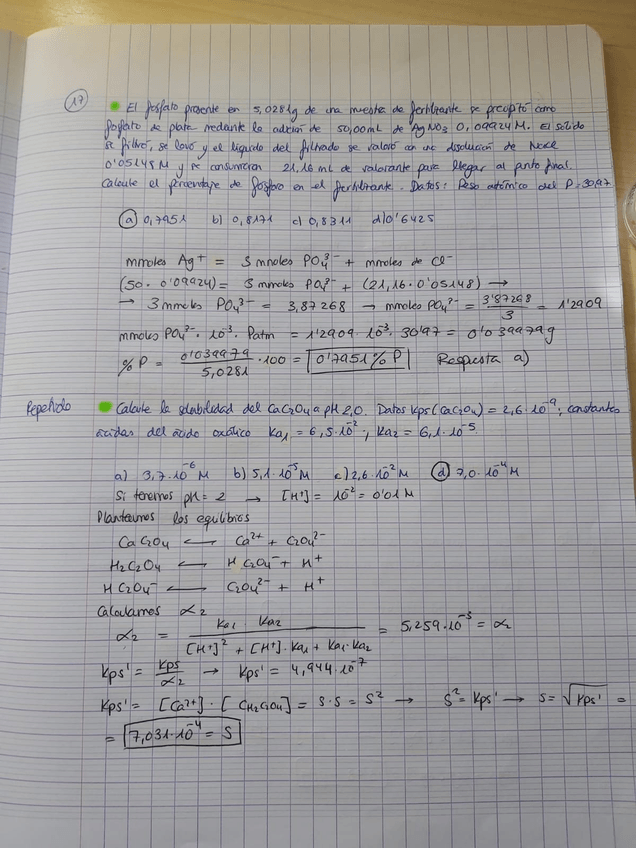 17
El fosfato presente en 5,0281g de una muestra de fertilizante se precipitó como
fosfato de plata mediante la adición de 50,00mL de AgNO3 0,09924M. El sólido
se filtró, se lavó y el líquido del filtrado se valoró con una disolución de
0'05148M y se consumieron 21,16 mL de valorante para llegar al punto final.
Calcule el porcentaje de fósforo en el fertilizante. Datos: Peso atómico del P = 30,97
a) 0,7951 b) 0,8171 c) 0,8311 d) 0'6425
mmoles Ag+ = 3 mmoles PO4 3- + mmoles de Cl-
(50 · 0'09924) = 3 mmoles PO4 3- + (21,16 · 0'05148) →
→ 3 mmoles PO4 3- = 3,87268 → mmoles PO4 3- = 3'87268 / 3 = 1'2909
mmoles PO4 3- · 10^-3 · Patm = 1'2909 · 10^-3 · 30'97 = 0'039979g
% P = 0'039979 / 5,0281 · 100 = 0'7951 % P Respuesta a)
Repetido
Calcule la solubilidad del CaC2O4 a pH 2,0. Datos Kps (CaC2O4) = 2,6 · 10^-9; constantes
ácidas del ácido oxálico Ka1 = 6,5 · 10^-2; Ka2 = 6,1 · 10^-5.
a) 3,7 · 10^-6 M b) 5,1 · 10^-5 M c) 2,6 · 10^-2 M d) 7,0 · 10^-4 M
Si tenemos pH = 2 → [H+] = 10^-2 = 0'01 M
Planteamos los equilibrios
CaC2O4 ⟷ Ca2+ + C2O4 2-
H2C2O4 ⟷ HC2O4- + H+
HC2O4- ⟷ C2O4 2- + H+
Calculamos α2
α2 = Ka1 · Ka2 / [H+]^2 + [H+] · Ka1 + Ka1 · Ka2 = 5,259 · 10^-3 = α2
Kps' = Kps / α2 → Kps' = 4,944 · 10^-7
Kps' = [Ca2+] · [CH2C2O4] = S · S = S^2 → S^2 = Kps' → S = √Kps' =
= 7,031 · 10^-4 = S